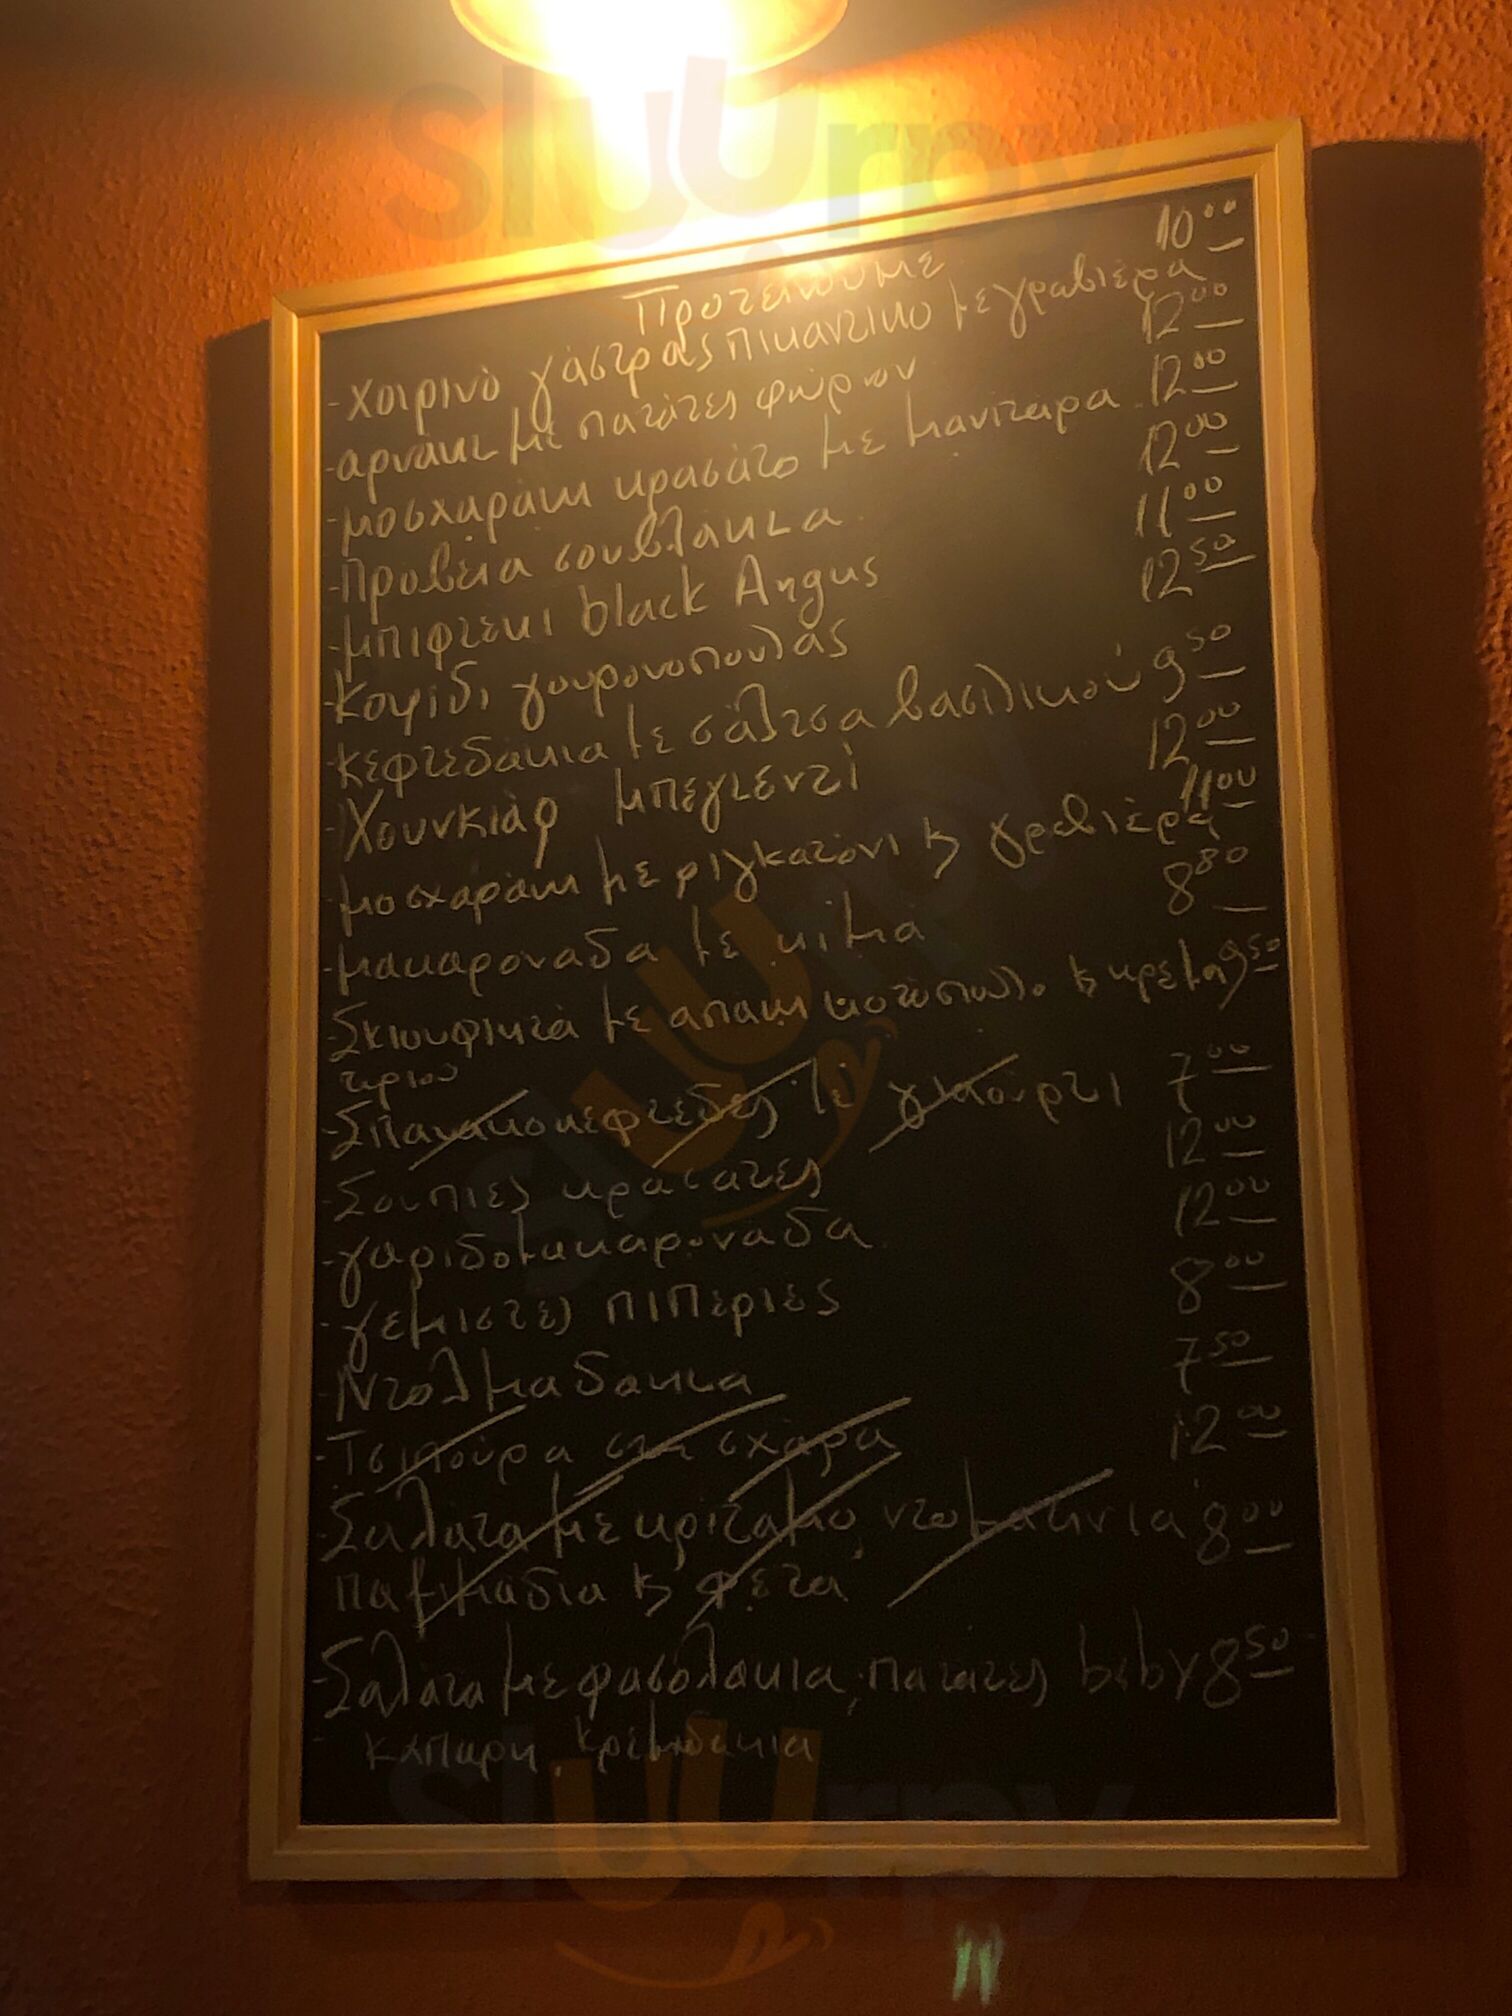 sluurpy
Προτείνουμε
-χοιρινό γάστρας πικάντικο με γραβιέρα 10⁰⁰
-αρνάκι με πατάτες φούρνου 12⁰⁰
-μοσχαράκι κρασάτο με μανιτάρια 12⁰⁰
-Πρόβεια σουβλάκια 12⁰⁰
-μπιφτέκι black Angus 11⁰⁰
κοψίδι γουρουνοπουλας 12⁵⁰
κεφτεδάκια με σάλτσα βασιλικού 9⁵⁰
-Χουνκιάρ μπεγιεντί 12⁰⁰
-μοσχαράκι με ριγκατόνι & γραβιέρα 11⁰⁰
-μακαροναδα με κιμα 8⁸⁰
-Σκιουφιχτά με απακι κοτόπουλο & κρέμα 9⁵⁰
τυριου
-Σπανακοκεφτέδες με γιαούρτι 7⁰⁰
-Σουπιες κρασάτες 12⁰⁰
-γαριδομακαρονάδα 12⁰⁰
-γεμιστες πιπεριές 8⁰⁰
-Ντολμαδακια 7⁵⁰
-Τσιπούρα στη σχάρα 12⁰⁰
-Σαλάτα με κρίταμο, ντοματινια 8⁰⁰
παξιμάδια & φέτα
-Σαλάτα με φασολάκια, πατάτες beby 8⁵⁰
κάπαρη, κρεμυδακια
sluurpy
sluurpy